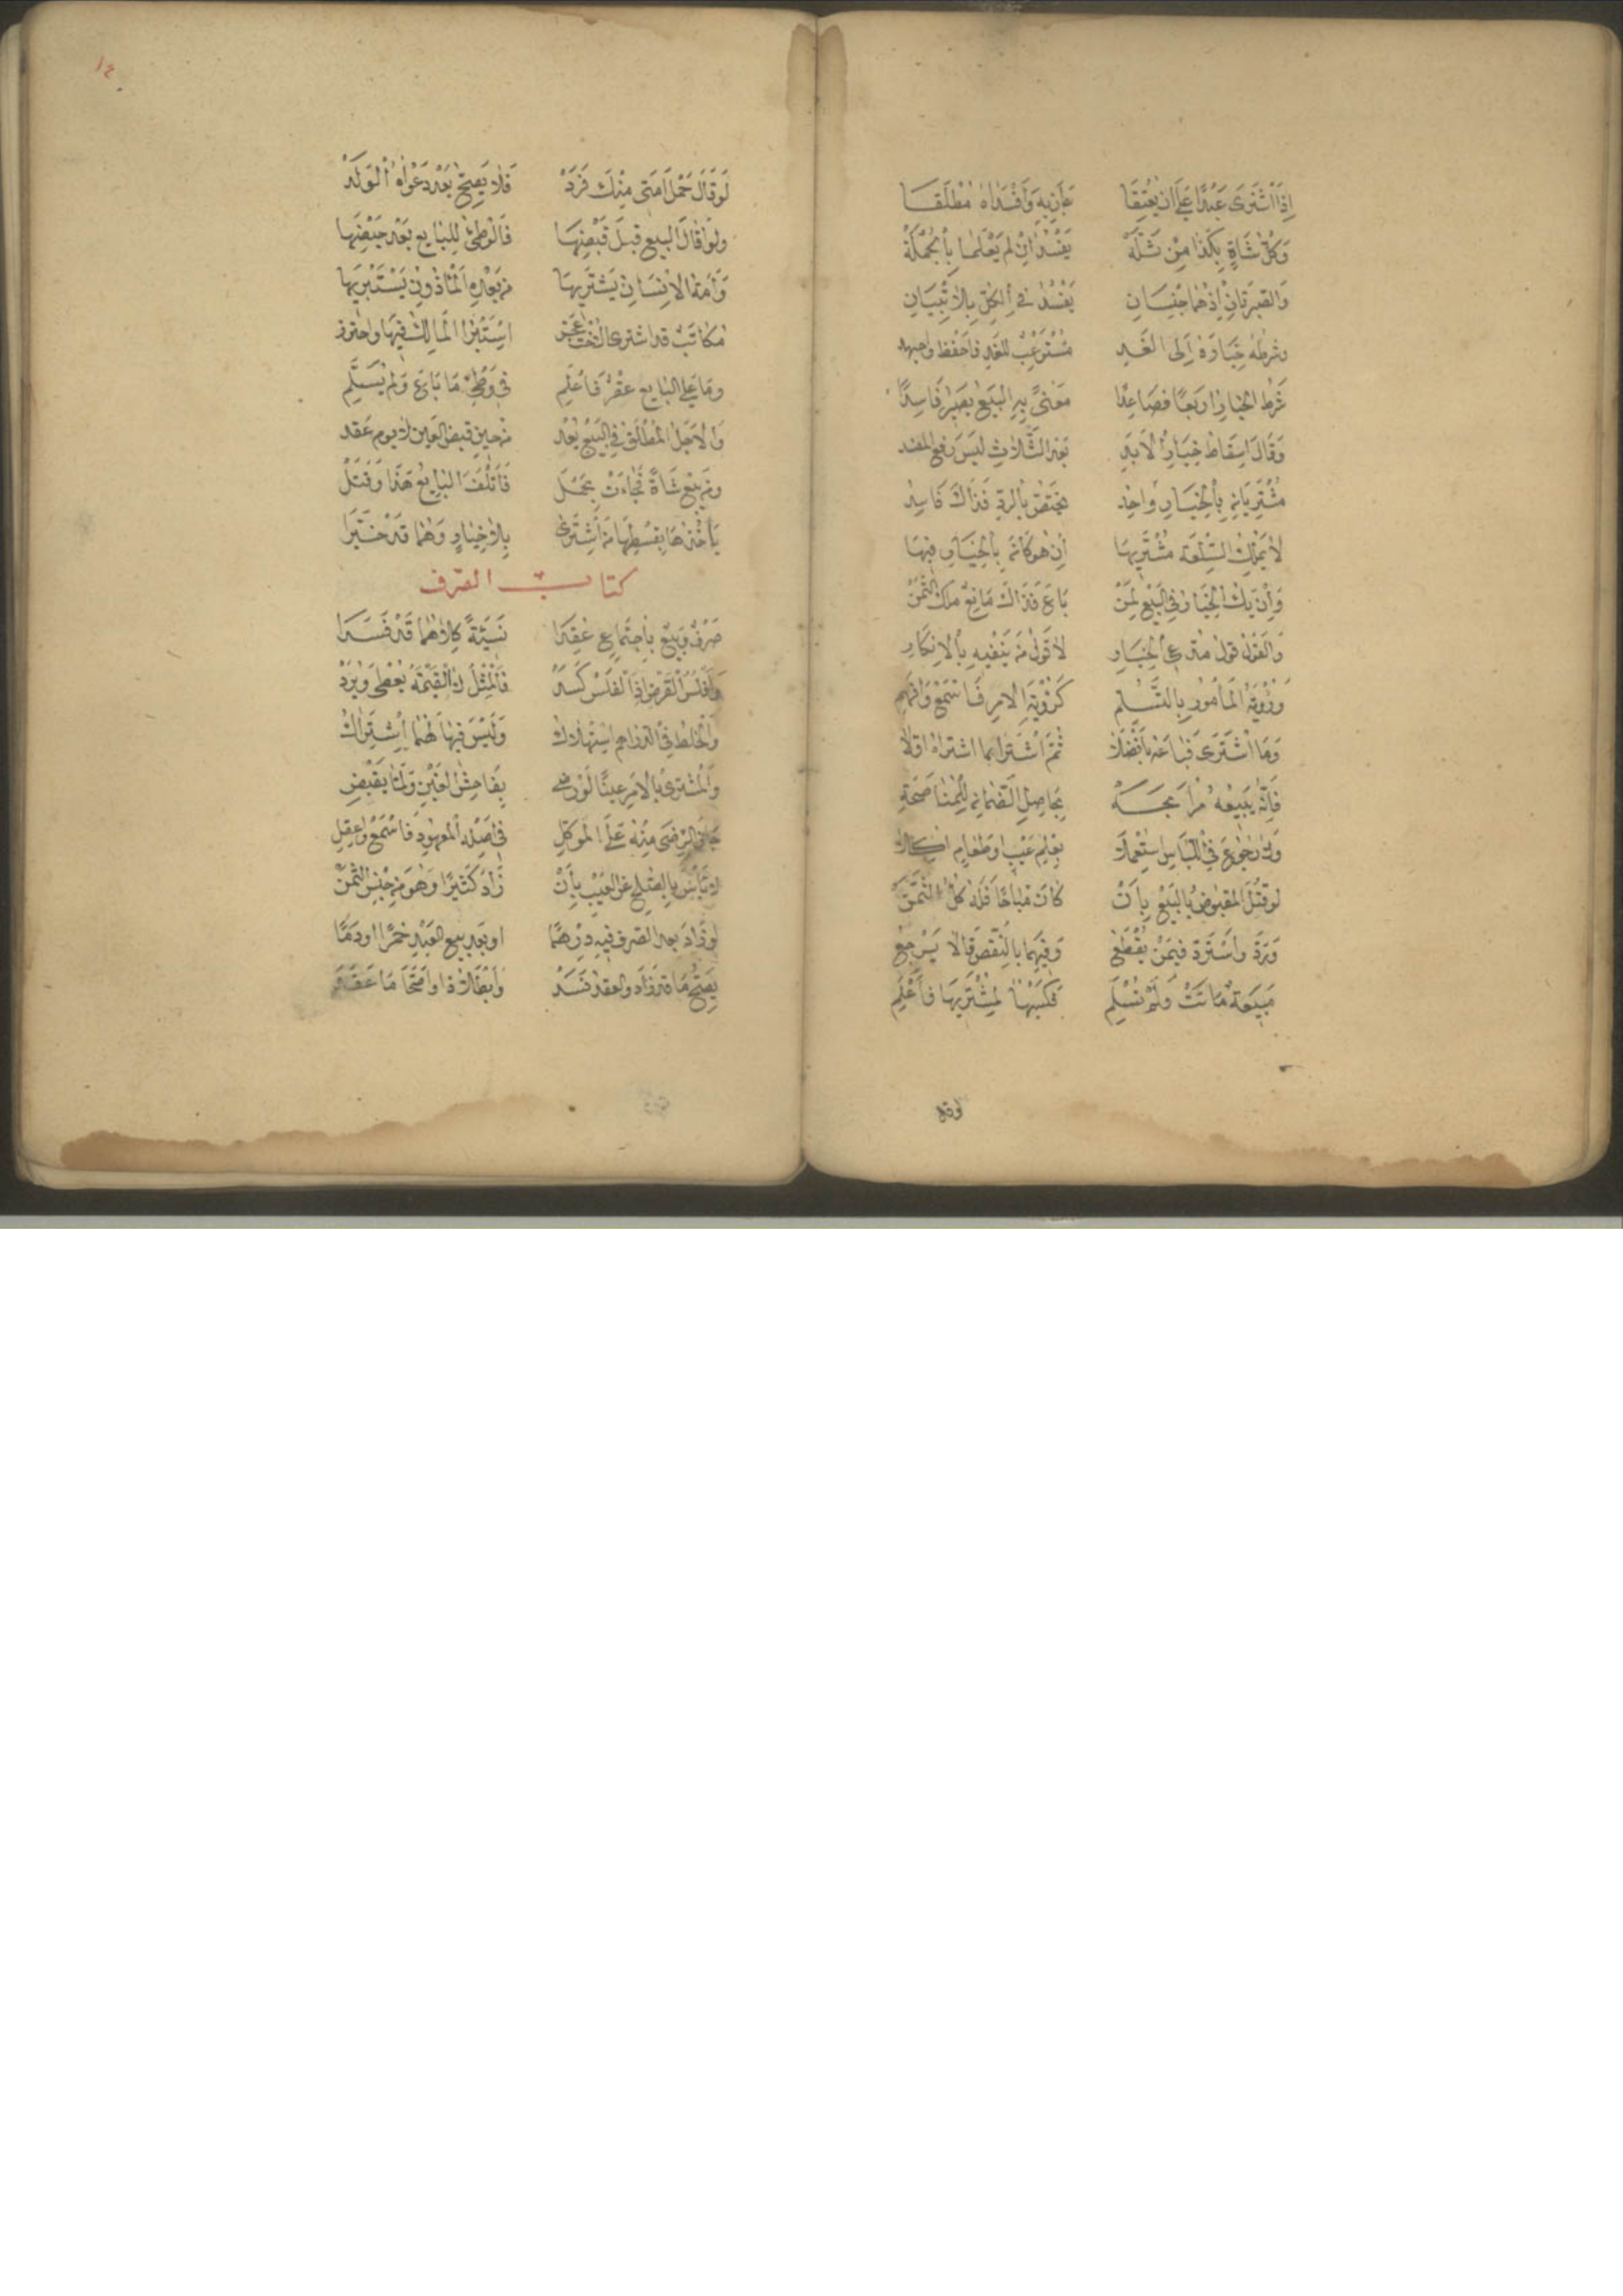 إذا اشترى عبدا على ان يعتقا جاز به وأفسداه مطلقا
وكل شاة بكذا من ثلة يفسد ان لم يعلما بالجملة
والصبرتان إذ هما جنسان يفسد في الكل بلا تبيان
وشرطه خياره إلى الغد مستوعب للغد فاحفظ واجهد
شرط الخيار اربعا فصاعدا معنى به البيع يصير فاسدا
وقال اسقاط خيار الابد بعد الثلاث ليس رفع المفسد
مشتريان بالخيار واحد يختص بالرد فذاك فاسد
لا يملك السلعة مشتريها ان هو كان بالخيار فيها
وإن يك الخيار في البيع لمن باع فذاك مانع ملك الثمن
والقول قول مدعي الخيار لا قول من ينفيه بالانكار
ورؤية المأمور بالتسلم كرؤية الامر فاسمع وافهم
وما اشترى فباعه بافضلا ثم اشترى ما اشتراه اولا
فانه يبيعه مرابحه بحاصل الضمان للمناصحة
ولا رجوع في اللباس استعملا بعلم عيب او طعام اكلا
لو قتل المقبوض بالبيع بأن كان مباحا فله كل الثمن
ورد واسترد فيمن يقطع وفيهما بالنقص قالا يرجع
مبيعة ماتت ولم تسلم فكسبها لمشتريها فأعلم
لو قال
١٤
لو قال حمل امتي منك فرد فلا يصح بعد دعواه الولد
ولو اقال البيع قبل قبضها فالوطئ للبايع بعد حيضها
وأمة الانسان يشتريها من بعده المأذون يستبريها
مكاتب قد اشترى اختا عجز استبرأ المالك فيها واحترز
وما على البايع عقر فاعلم في وطئ ما باع ولم يسلم
والاجل المطلق في البيع يعد من حين قبض العين لا يوم عقد
ومن يبع شاة فجاءت بحمل فأتلف البايع هذا وقتل
يأخذها بقسطها من اشترى بلا خيار وهما قد خيرا
كتاب الصرف
صرف وبيع باجتماع عقدا نسيئة كلاهما قد فسدا
وأفلس القرض اذا الفلس كسد فالمثل لا القيمة يعطى ويرد
والخلط في الدراهم استهلاك وليس فيها لهما اشتراك
والمشتري بالامر عينا لو رضي بفاحش العين ولما يقبض
جاز الرضى منه على الموكل في اصله المعهود فاسمع واعقل
لا بأس بالصلح عن العيب بأن زاد كثيرا وهو من جنس الثمن
لو زاد بعد الصرف فيه درهما او بعد بيع العبد خمرا او دما
يصح ما قد زاد والعقد فسد وأبطلا ذا واصحا ما عقد